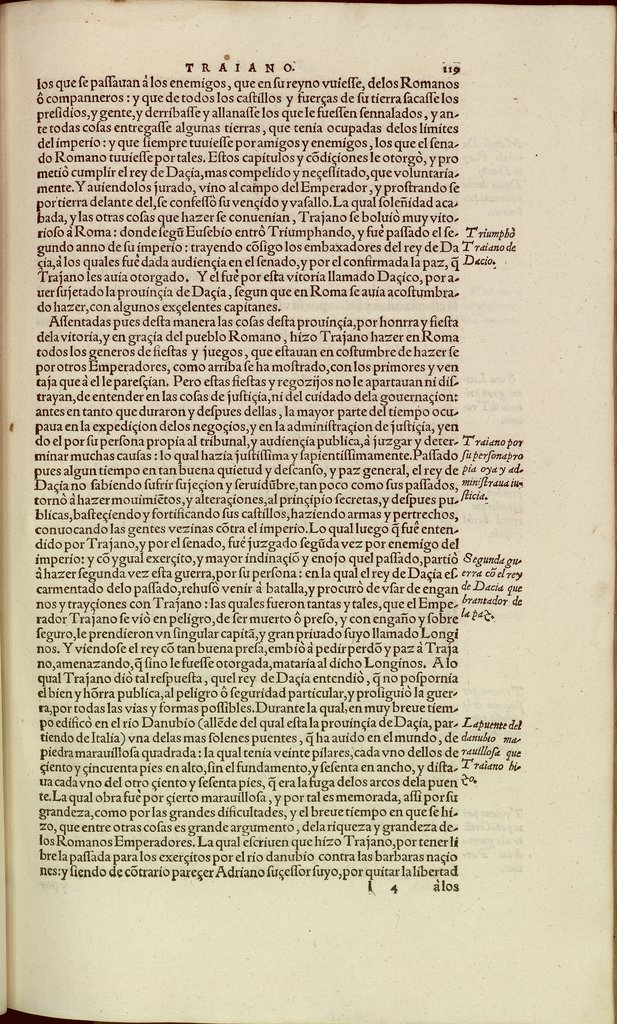 TRAIANO.
119
los que se passauan à los enemigos, que en su reyno vuiesse, de los Romanos
ô companneros: y que de todos los castillos y fuerças de su tierra sacasse los
presidios, y gente, y derribasse y allanasse los que le fuessen sennalados, y an-
te todas cosas entregasse algunas tierras, que tenía ocupadas delos límites
del imperio: y que siempre tuuiesse por amigos y enemigos, los que el sena-
do Romano tuuiesse por tales. Estos capítulos y cõdiçiones le otorgò, y pro
metiò cumplir el rey de Daçia, mas compelido y neçessitado, que voluntaria-
mente. Y auiendolos jurado, vino al campo del Emperador, y prostrando se
por tierra delante del, se confessò su vençido y vasallo. La qual soleñidad aca-
bada, y las otras cosas que hazer se conuenían, Trajano se boluiò muy vito-
rioso à Roma: donde segũ Eusebio entrò Triumphando, y fuê passado el se-
gundo anno de su imperio: trayendo cõsigo los embaxadores del rey de Da
çia, à los quales fuê dada audiençia en el senado, y por el confirmada la paz, q̃
Trajano les auía otorgado. Y el fuê por esta vitoria llamado Daçico, por a-
uer sujetado la prouinçia de Daçia, segun que en Roma se auía acostumbra-
do hazer, con algunos exçelentes capitanes.
Triumphò
Traiano de
Dacio.
Assentadas pues desta manera las cosas desta prouinçia, por honrra y fiesta
dela vitoria, y en graçia del pueblo Romano, hizo Trajano hazer en Roma
todos los generos de fiestas y juegos, que estauan en costumbre de hazer se
por otros Emperadores, como arriba se ha mostrado, con los primores y ven
taja que à el le paresçian. Pero estas fiestas y regozijos no le apartauan ni dis-
trayan, de entender en las cosas de justiçia, ni del cuidado dela gouernaçion:
antes en tanto que duraron y despues dellas, la mayor parte del tiempo ocu-
paua en la expediçion delos negoçios, y en la administraçion de justiçia, yen
do el por su persona propia al tribunal, y audiençia publica, à juzgar y deter-
minar muchas causas: lo qual hazía justissima y sapientissimamente. Passado
pues algun tiempo en tan buena quietud y descanso, y paz general, el rey de
Daçia no sabiendo sufrir sujeçion y seruidũbre, tan poco como sus passados,
tornò à hazer mouimiẽtos, y alteraçiones, al prinçipio secretas, y despues pu-
blicas, basteçiendo y fortificando sus castillos, haziendo armas y pertrechos,
conuocando las gentes vezinas cõtra el imperio. Lo qual luego q̃ fuê enten-
dido por Trajano, y por el senado, fuê juzgado segũda vez por enemigo del
imperio: y cõ ygual exerçito, y mayor indinaçiõ y enojo quel passado, partiò
à hazer segunda vez esta guerra, por su persona: en la qual el rey de Daçia es-
carmentado delo passado, rehusò venir à batalla, y procurò de vsar de engan
nos y trayçiones con Trajano: las quales fueron tantas y tales, que el Empe-
rador Trajano se viò en peligro, de ser muerto ô preso, y con engaño y sobre
seguro, le prendieron vn singular capitã, y gran priuado suyo llamado Longi
nos. Y viendose el rey cõ tan buena presa, embiò à pedir perdõ y paz à Traja
no, amenazando, q̃ sino le fuesse otorgada, mataría al dicho Longinos. A lo
qual Trajano diò tal respuesta, quel rey de Daçia entendiò, q̃ no pospornía
el bien y hõrra publica, al peligro ô seguridad particular, y prosiguiò la guer-
ra, por todas las vias y formas possibles. Durante la qual, en muy breue tiem-
po edificò en el río Danubio (allẽde del qual esta la prouinçia de Daçia, par-
tiendo de Italia) vna delas mas solenes puentes, q̃ ha auido en el mundo, de
piedra marauillosa quadrada: la qual tenía veinte pilares, cada vno dellos de
çiento y çincuenta pies en alto, sin el fundamento, y sesenta en ancho, y dista-
ua cada vno del otro çiento y sesenta pies, q̃ era la fuga delos arcos dela puen
te. La qual obra fuê por çierto marauillosa, y por tal es memorada, assi por su
grandeza, como por las grandes dificultades, y el breue tiempo en que se hi-
zo, que entre otras cosas es grande argumento, dela riqueza y grandeza de-
los Romanos Emperadores. La qual escriuen que hizo Trajano, por tener li
bre la passada para los exerçitos por el río danubio contra las barbaras naçio
nes: y siendo de cõtrario pareçer Adriano suçessor suyo, por quitar la libertad
Traiano por
su persona pro
pia oya y ad-
ministraua iu-
sticia.
Segunda gu-
erra cõ el rey
de Dacia que
brantador de
la paz.
La puente del
danubio ma-
rauillosa que
Traiano hi-
zo.
l 4
à los